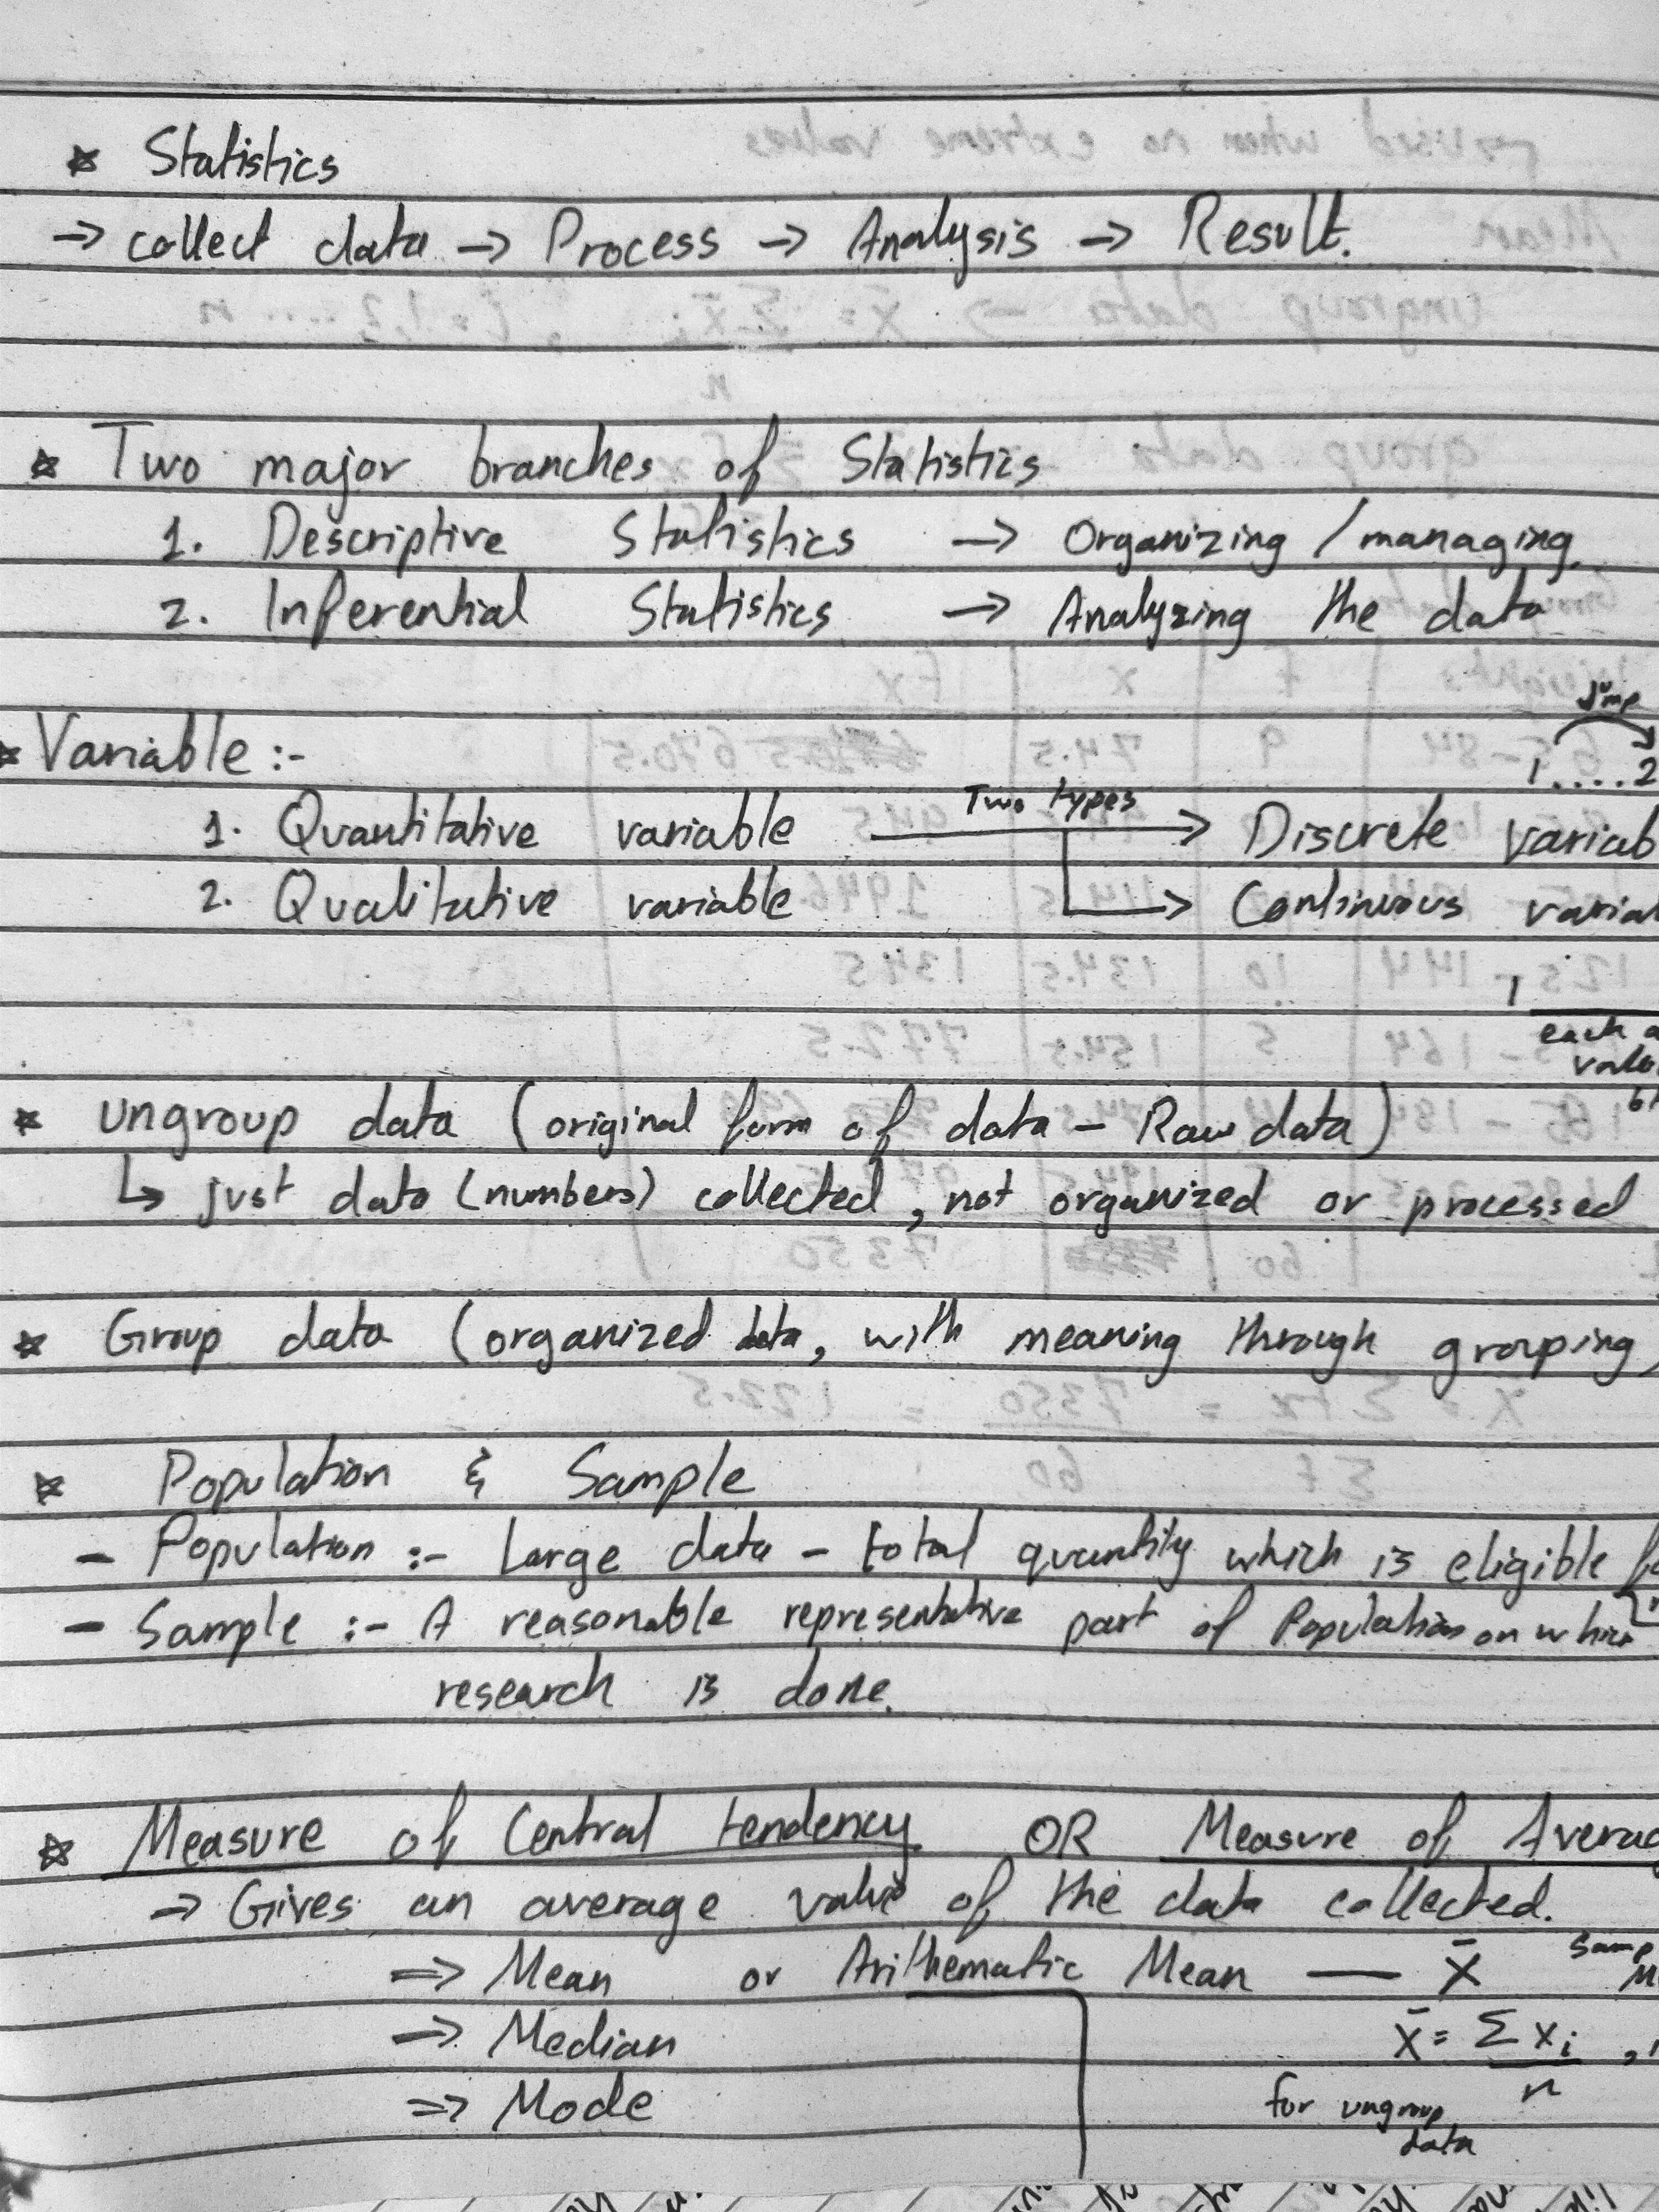 * Statistics
→ collect data → Process → Analysis → Result.
* Two major branches of Statistics
1. Descriptive Statistics → Organizing / managing
2. Inferential Statistics → Analyzing the data
Jump
1 .... 2
* Variable :-
Two types
1. Quantitative variable → Discrete variab
2. Qualitative variable → Continuous varia
1
each
* ungroup data (original form of data - Raw data)
↳ just data (numbers) collected, not organized or processed
* Group data (organized data, with meaning through grouping)
* Population & Sample
- Population :- Large data - total quantity which is eligible
- Sample :- A reasonable representative part of Population on which
research is done.
* Measure of Central tendency OR Measure of Averag
⇒ Gives an average value of the data collected.
⇒ Mean or Arithematic Mean — x̄ Samp
⇒ Median x̄ = Σxi / n ,
⇒ Mode for ungroup
data